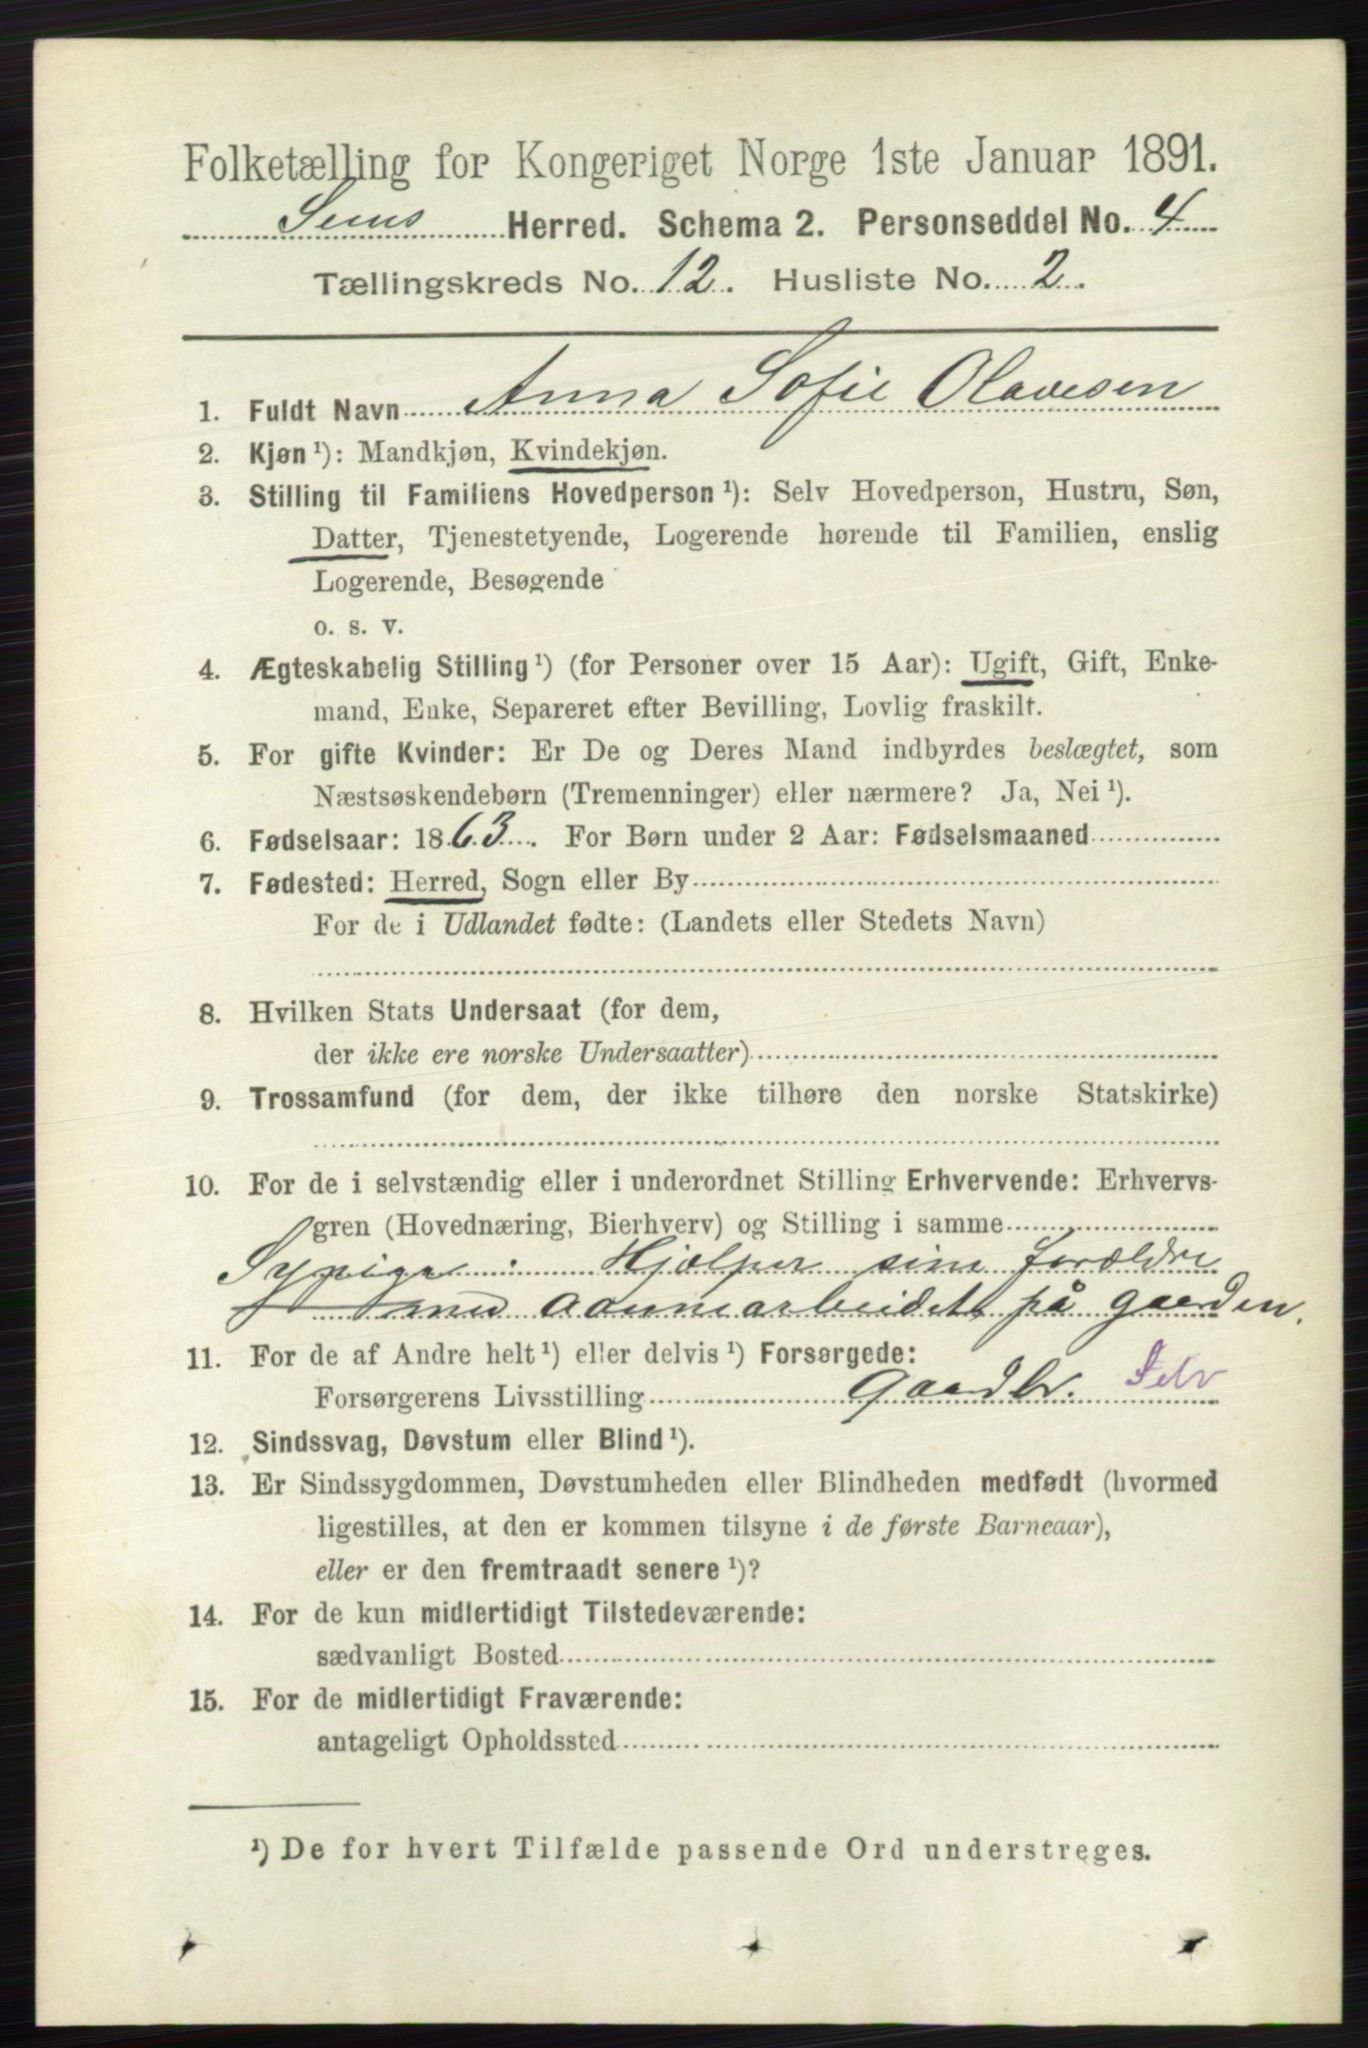 Folketælling for Kongeriget Norge 1ste Januar 1891.
Sems Herred. Schema 2. Personseddel No. 4
Tællingskreds No. 12. Husliste No. 2.
1. Fuldt Navn Anna Sofie Olavesen
2. Kjøn ¹): Mandkjøn, Kvindekjøn.
3. Stilling til Familiens Hovedperson ¹): Selv Hovedperson, Hustru, Søn,
Datter, Tjenestetyende, Logerende hørende til Familien, enslig
Logerende, Besøgende
o. s. v.
4. Ægteskabelig Stilling ¹) (for Personer over 15 Aar): Ugift, Gift, Enke-
mand, Enke, Separeret efter Bevilling, Lovlig fraskilt.
5. For gifte Kvinder: Er De og Deres Mand indbyrdes beslægtet, som
Næstsøskendebørn (Tremenninger) eller nærmere? Ja, Nei ¹).
6. Fødselsaar: 1863. For Børn under 2 Aar: Fødselsmaaned
7. Fødested: Herred, Sogn eller By
For de i Udlandet fødte: (Landets eller Stedets Navn)
8. Hvilken Stats Undersaat (for dem,
der ikke ere norske Undersaatter)
9. Trossamfund (for dem, der ikke tilhøre den norske Statskirke)
10. For de i selvstændig eller i underordnet Stilling Erhvervende: Erhvervs-
gren (Hovednæring, Bierhverv) og Stilling i samme
Sypige: Hjælper sine forældre
med aannearbeidet på gaarden.
11. For de af Andre helt ¹) eller delvis ¹) Forsørgede:
Forsørgerens Livsstilling Gaardbr. Selv
12. Sindssvag, Døvstum eller Blind ¹).
13. Er Sindssygdommen, Døvstumheden eller Blindheden medfødt (hvormed
ligestilles, at den er kommen tilsyne i de første Barneaar),
eller er den fremtraadt senere ¹)?
14. For de kun midlertidigt Tilstedeværende:
sædvanligt Bosted
15. For de midlertidigt Fraværende:
antageligt Opholdssted
¹) De for hvert Tilfælde passende Ord understreges.